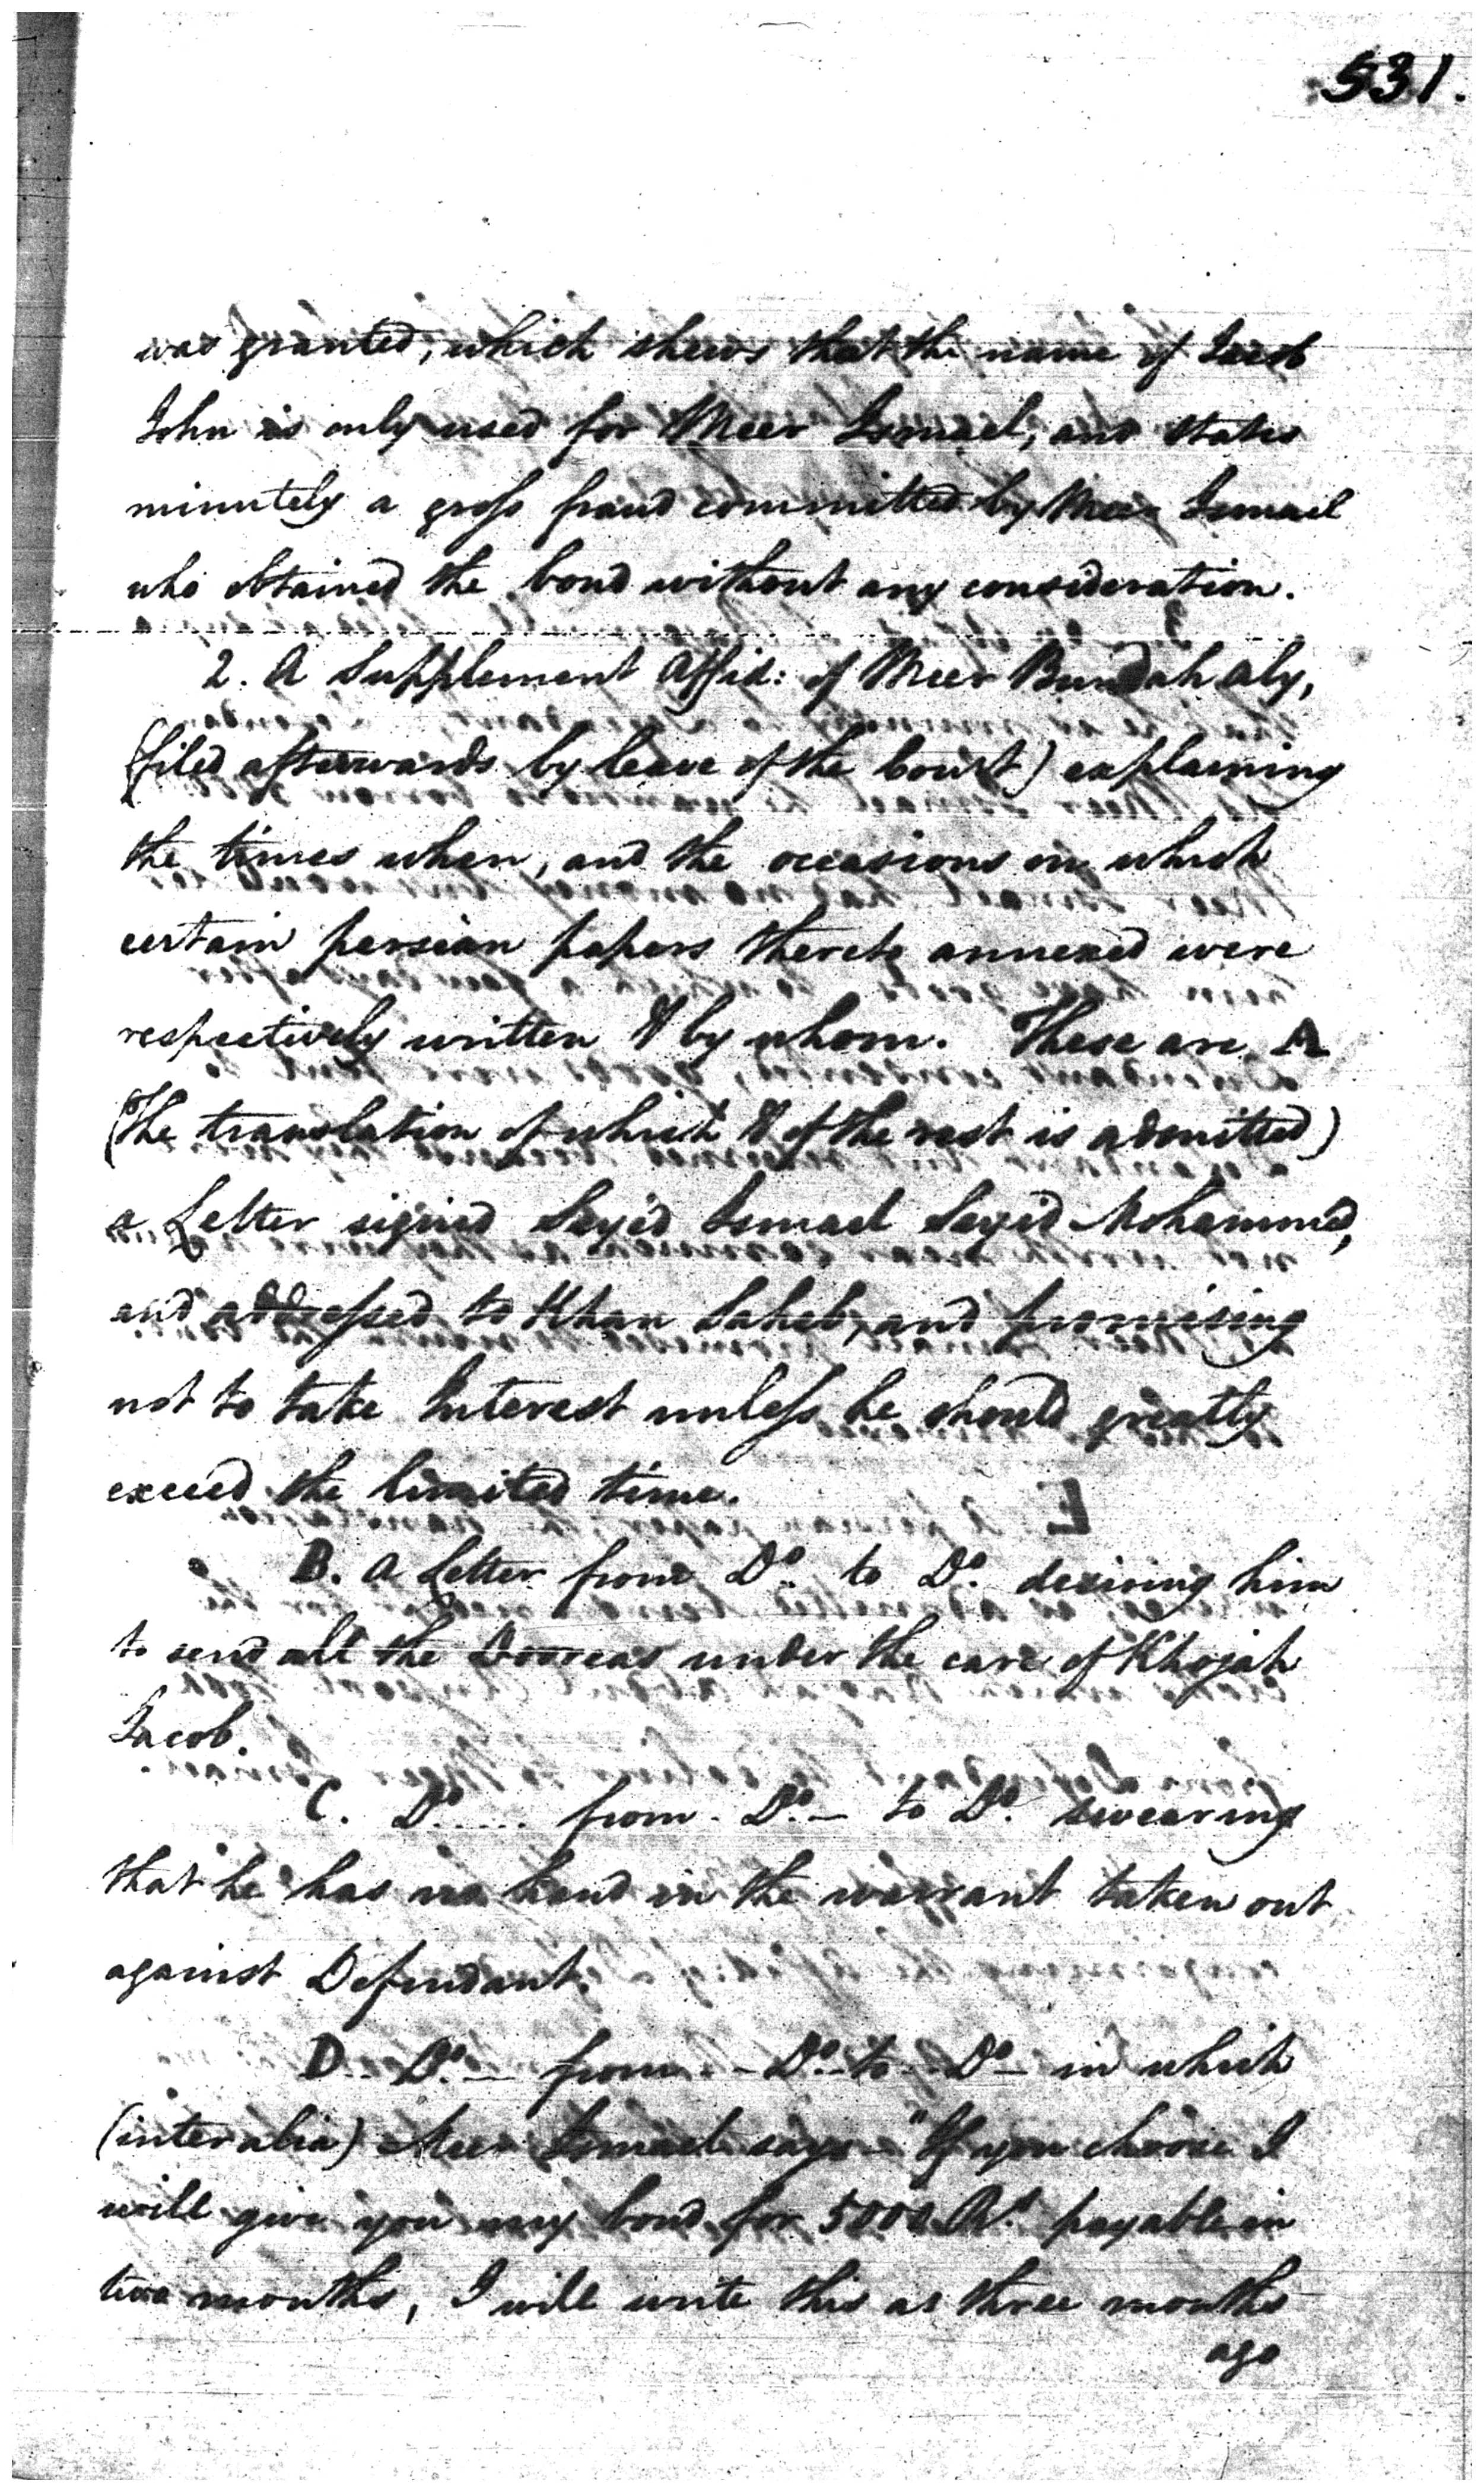 531.
was granted, which shews that the name of Jacob
John is only used for Meer Ismael, and states
minutely a gross fraud committed by Meer Ismael
who obtained the bond without any consideration.
2. A Supplement Affid: of Meer Bundah Aly,
(filed afterwards by leave of the Court) explaining
the times when, and the occasions on which
certain persian papers thereto annexed were
respectively written & by whom. These are A
(the translation of which & of the rest is admitted)
a Letter signed Sayed Ismael Sayed Mohammed,
and addressed to Khan Saheb, and promising
not to take Interest unless he should greatly
exceed the limited time.
B. A Letter from Do. to Do. desiring him
to send all the Dooreas under the care of Khojah
Jacob.
C. Do..... from - Do. - to Do. swearing
that he has no hand in the warrant taken out
against Defendant.
D. - Do. - from - - Do. - to - Do - in which
(inter alia) Meer Ismael says - "If you choose I
will give you my bond for 5000 Rs. payable in
two months, I will write this as three months
ago